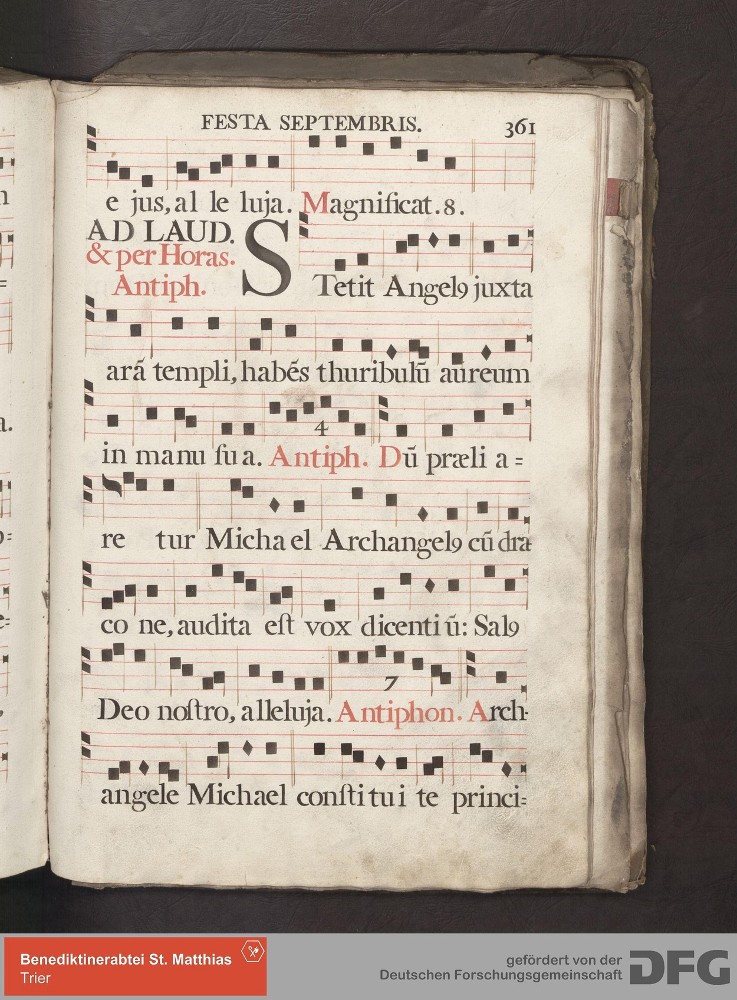 FESTA SEPTEMBRIS. 361
e jus, al le luja. Magnificat. 8.
AD LAUD.
& per Horas.
Antiph.
STetit Angelꝰ juxta
arã templi, habẽs thuribulũ aureum
4
in manu ſua. Antiph. Dũ præli a =
re tur Michael Archangelꝰ cũ dra
co ne, audita eſt vox dicentiũ: Salꝰ
7
Deo noſtro, alleluja. Antiphon. Arch-
angele Michael conſti tu i te princi=
Benediktinerabtei St. Matthias
Trier
gefördert von der
Deutschen Forschungsgemeinschaft
DFG